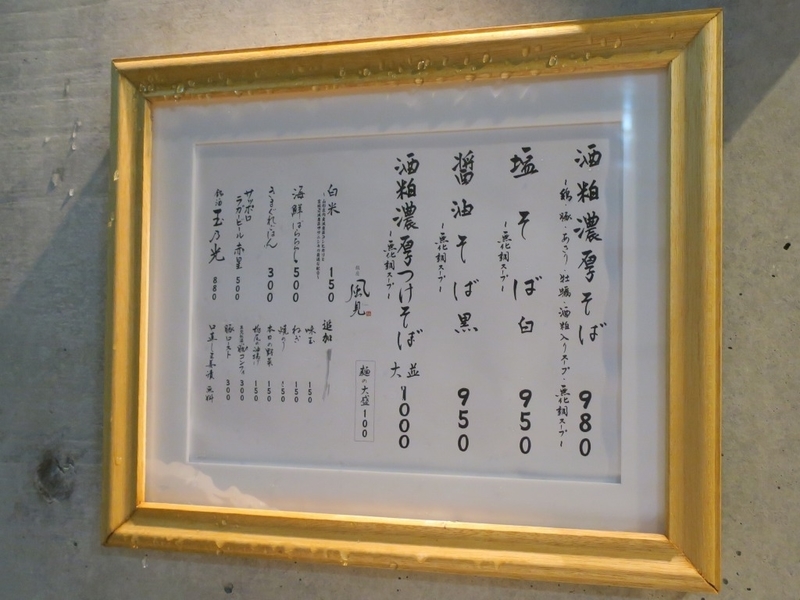 酒粕濃厚そば 980
ー鶏・豚・あさり・牡蠣・酒粕入りスープ・無化調スープー
塩そば 白 950
ー無化調スープー
醤油そば 黒 950
ー無化調スープー
酒粕濃厚つけそば 並大 1000
ー無化調スープー
麺の大盛 100
風見
白米 150
海鮮ばらちらし 500
きまぐれごはん 300
サッポロラガービール 赤星 500
玉乃光 880
追加
味玉 150
ねぎ 150
焼のり 150
本日の野菜 150
300
豚ロースト 300
無料